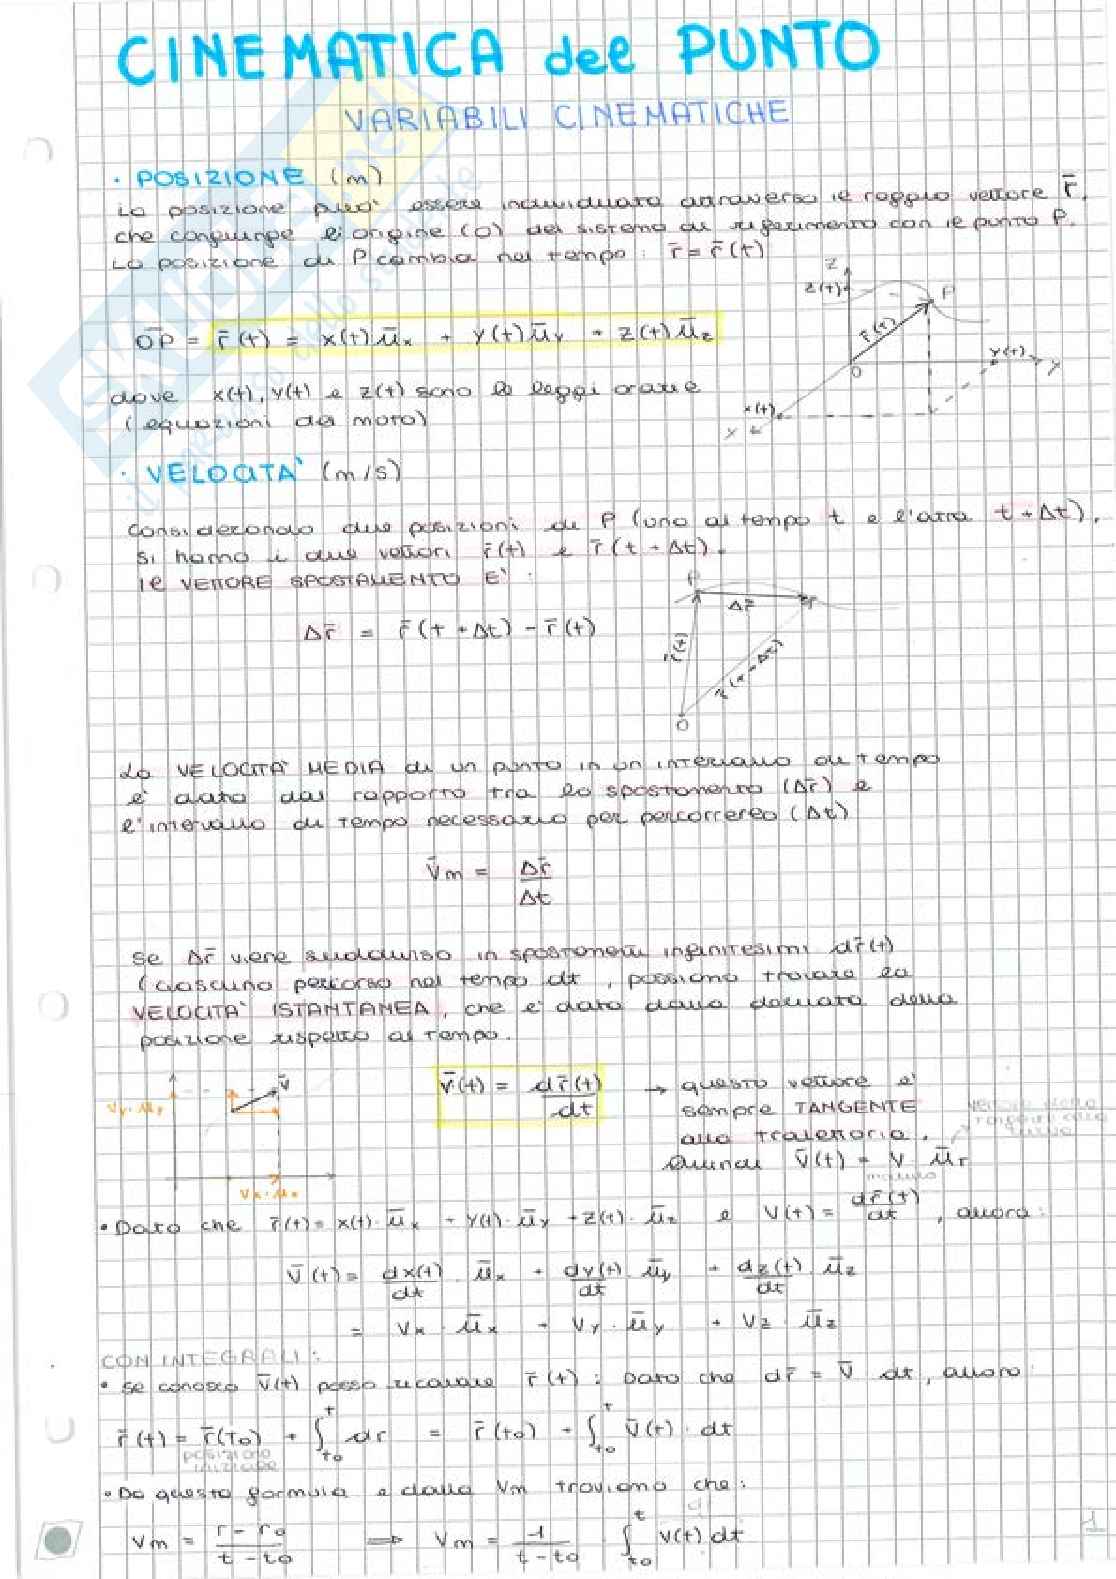 CINEMATICA del PUNTO
VARIABILI CINEMATICHE
· POSIZIONE (m)
La posizione può essere individuata attraverso il raggio vettore r̄,
che congiunge l'origine (O) del sistema di riferimento con il punto P.
La posizione di P cambia nel tempo: r̄ = r̄(t)
OP̄ = r̄(t) = x(t)ūx + y(t)ūy + z(t)ūz
dove x(t), y(t) e z(t) sono le leggi orarie
(equazioni del moto)
z
z(t)
P
r̄(t)
y(t)
O
y
x(t)
x
· VELOCITA' (m/s)
Considerando due posizioni di P (una al tempo t e l'altra t+Δt),
si hanno i due vettori r̄(t) e r̄(t+Δt).
il VETTORE SPOSTAMENTO E':
Δr̄ = r̄(t+Δt) - r̄(t)
P
Δr̄
r̄(t)
r̄(t+Δt)
O
La VELOCITA' MEDIA di un punto in un intervallo di tempo
e' data dal rapporto tra lo spostamento (Δr̄) e
l'intervallo di tempo necessario per percorrerlo (Δt)
V̄m = Δr̄/Δt
Se Δr̄ viene suddiviso in spostamenti infinitesimi dr̄(t)
(ciascuno percorso nel tempo dt, possiamo trovare la
VELOCITA' ISTANTANEA, che e' data dalla derivata della
posizione rispetto al tempo.
v̄
Vy·ūy
Vx·ūx
v̄(t) = dr̄(t)/dt → questo vettore e'
sempre TANGENTE
alla traiettoria.
Quindi v̄(t) = v ūT
modulo
• Dato che r̄(t) = x(t)·ūx + y(t)·ūy + z(t)·ūz e V(t) = dr̄(t)/dt, allora:
v̄(t) = dx(t)/dt · ūx + dy(t)/dt · ūy + dz(t)/dt · ūz
= Vx · ūx + Vy · ūy + Vz · ūz
CON INTEGRALI:
• se conosco v̄(t) posso ricavare r̄(t): Dato che dr̄ = v̄ dt, allora
r̄(t) = r̄(t0) + ∫t0^t dr = r̄(t0) + ∫t0^t v̄(t) · dt
posizione
iniziale
• Da questa formula e dalla Vm troviamo che:
Vm = (r - r0)/(t - t0) ⟹ Vm = 1/(t - t0) · ∫t0^t v(t) dt
1